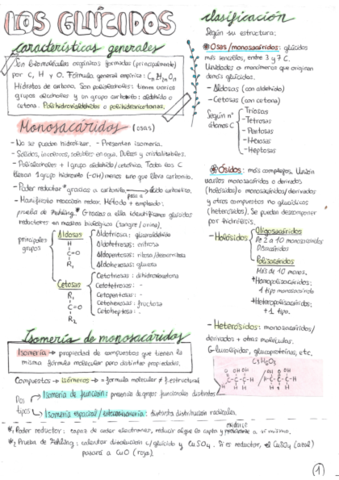 LOS GLÚCIDOS
características generales
Son biomoléculas orgánicas formadas (principalmente)
por C, H y O. Fórmula general empírica: CnH2nOn
Hidratos de carbono. Son polialcoholes + tienen varios
grupos alcoholes y un grupo carbonilo: aldehído o
cetona. Polihidroxialdehídos o polihidroxicetonas.
Monosacáridos (osas)
- No se pueden hidrolizar. - Presentan isomería.
- Sólidos, incoloros, solubles en agua. Dulces y cristalizables.
- Polialcoholes + 1 grupo aldehído/cetona. Todos los C
llevan 1 grupo hidroxilo (-OH) menos uno que lleva carbonilo.
- Poder reductor * gracias a carbonilo
prueba de Fehling.* Gracias a ella identificamos glúcidos
reductores en medios biológicos (sangre/orina).
principales
grupos
Aldosas
Aldotriosas: gliceraldehído
Aldotetrosas: eritrosa
Aldopentosas: ribosa/desoxirribosa
Aldohexosas: glucosa
Cetosas
Cetotriosas: dihidroxiacetona
Cetotetrosas: -
Cetopentosas: -
Cetohexosas: fructosa
Isomería de monosacáridos
Isomería → propiedad de compuestos que tienen la
misma fórmula molecular pero distintas propiedades.
Compuestos → isómeros → = fórmula molecular y ≠ estructural
Dos
tipos
Isomería de función → presenta grupos funcionales distintos
Isomería espacial/estereoisomería: distinta distribución radicales.
* Poder reductor: capaz de ceder electrones, reducir
* Prueba de Fehling: calentar disolución c/glúcido y CuSO4. Si es reductor, el CuSO4 (azul)
pasará a CuO (rojo).
clasificación
Según su estructura:
Osas/monosacáridos: glúcidos
más sencillos, entre 3 y 7 C.
Unidades o monómeros que originan
demás glúcidos.
- Aldosas (con aldehído)
- Cetosas (con cetona)
Según nº
átomos C
- Triosas
- Tetrosas
- Pentosas
- Hexosas
- Heptosas
Ósidos: más complejos. Unión
varios monosacáridos o derivados
(holósidos) o monosacáridos/derivados
y otros compuestos no glucídicos
(heterósidos). Se pueden descomponer
por hidrólisis.
- Holósidos
Oligosacáridos
De 2 a 10 monosacáridos
Disacáridos
Polisacáridos
Más de 10 monos.
*Homopolisacáridos:
1 tipo monosacárido
*Heteropolisacáridos:
+ 1 tipo.
- Heterósidos: monosacáridos/
derivados + otras moléculas.
Glucolípidos, glucoproteínas, etc.
C3H6O3
1